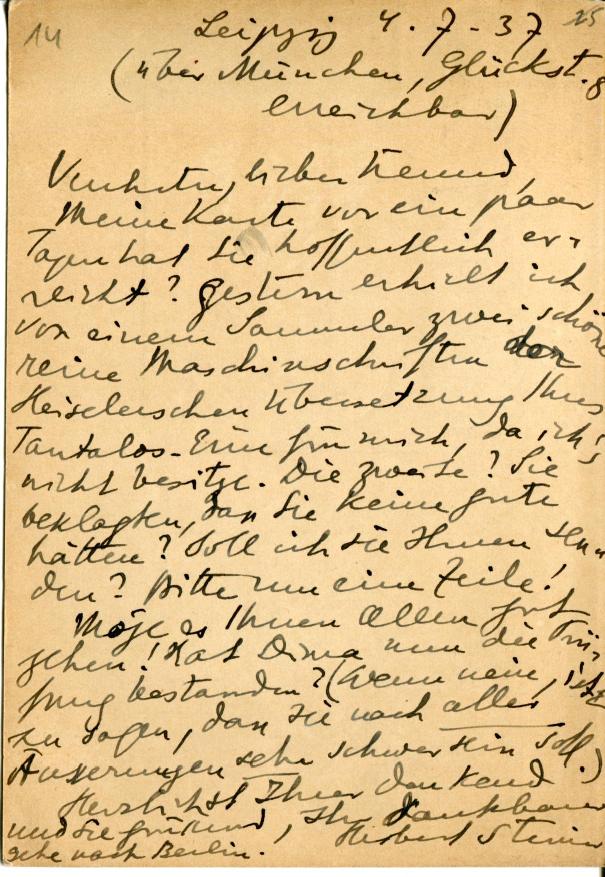 14
25
Leipzig 4.7-37
(über München, Glückst. 8
erreichbar)
Verehrter, lieber Freund,
Meine Karte vor ein paar
Tagen hat Sie hoffentlich er-
reicht? Gestern erhielt ich
von einem Sammler zwei schöne
reine Maschinschriften der
Heiselerschen Übersetzung Ihres
Tantalos - Eine für mich, da ich's
nicht besitze. Die zweite? Sie
beklagten, dass Sie keine gute
hätten? Soll ich sie Ihnen sen-
den? Bitte um eine Zeile!
Möge es Ihnen Allen gut
gehen! Hat Dima nun die Prü-
fung bestanden? (Wenn nein, ist
zu sagen, dass sie nach allen
Äusserungen sehr schwer sein soll.)
Herzlichst Ihrer denkend
und Sie grüssend, Ihr dankbarer
Herbert Steiner
gehe nach Berlin.